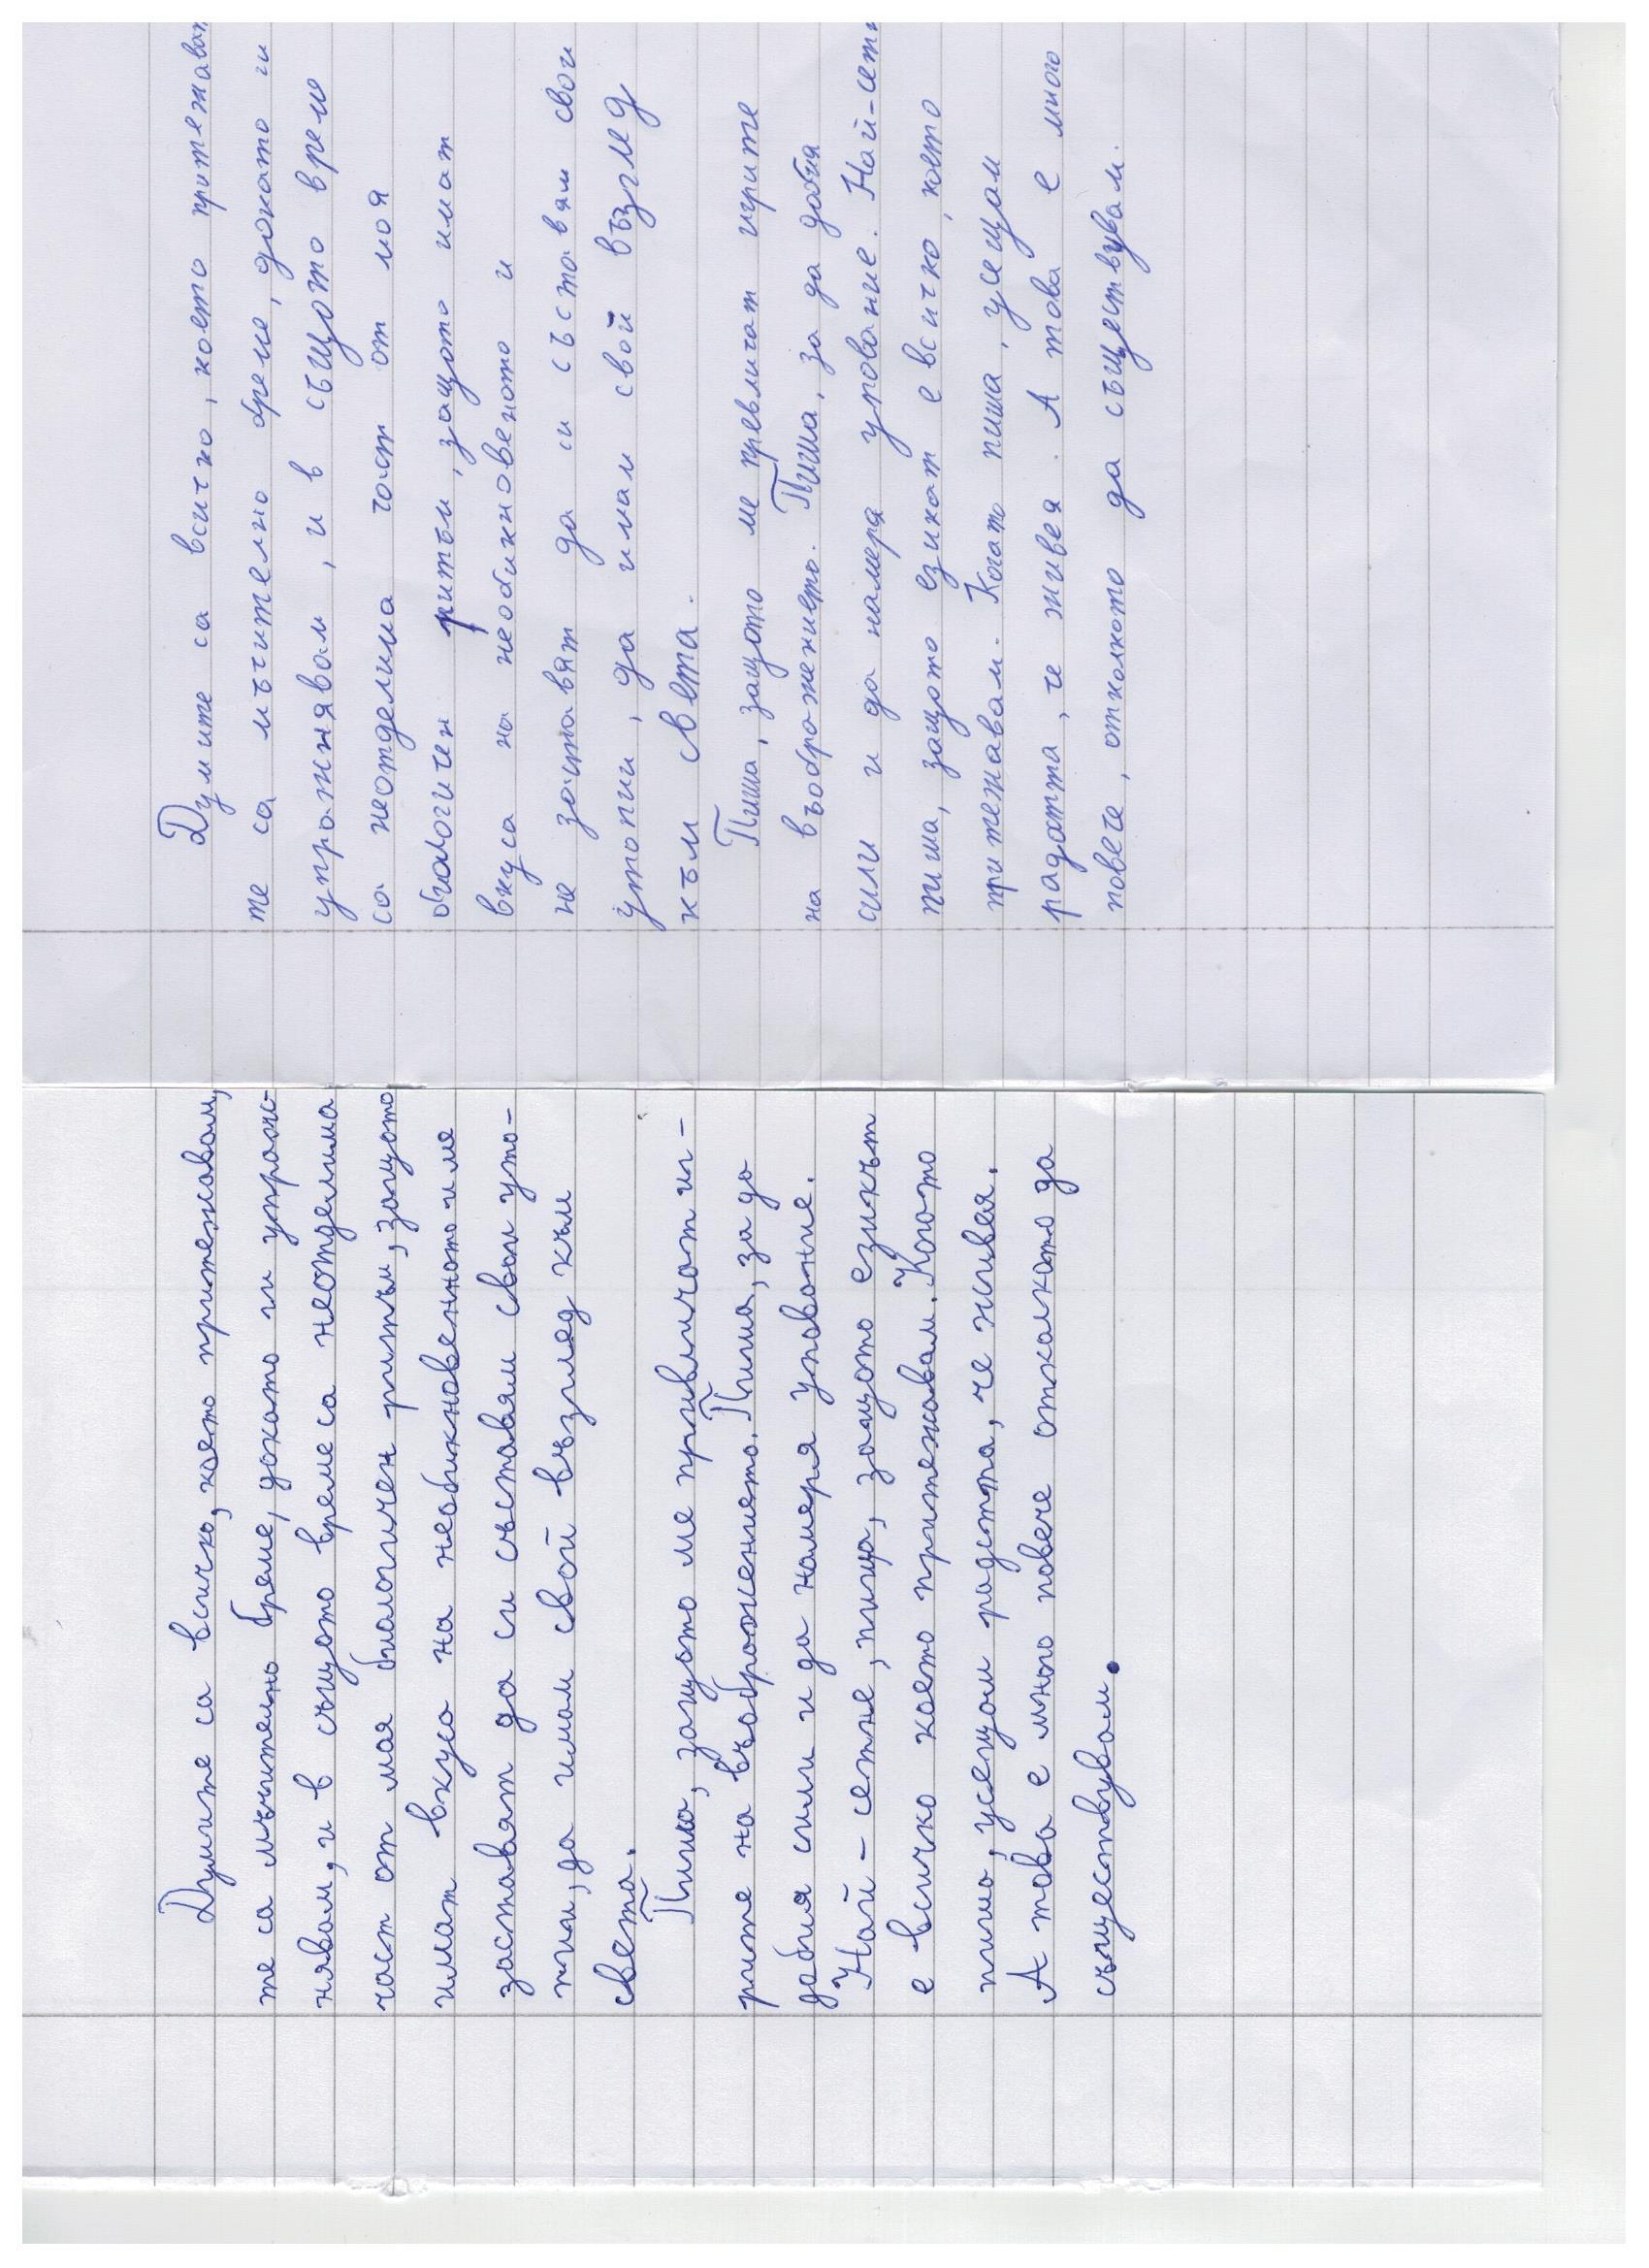 Думите са всичко, което притежавам,
те са мъчително бреме, докато ги упраж-
нявам, и в същото време са неотделима
част от моя биологичен ритъм, защото
имат вкуса на необикновеното и ме
заставят да си съставям свои уто-
пии, да имам свой възглед към
света.
Пиша, защото ме привличат иг-
рите на въображението. Пиша, за да
добия сили и да намеря упование.
Най-сетне, пиша, защото езикът
е всичко което притежавам. Когато
пиша, усещам радостта, че живея.
А това е много повече отколкото да
съществувам.
Думите са всичко, което притежавам
те са мъчително бреме, докато ги
упражнявам, и в същото време
са неотделима част от моя
биологичен ритъм, защото имат
вкуса на необикновеното и
не заставят да си съставям свои
утопии, да имам свой възглед
към света.
Пиша, защото ме превличат игрите
на въображението. Пиша, за да добия
сили и да намеря упование. Най-сетн
пиша, защото езикът е всичко, което
притежавам. Когато пиша, усещам
радостта, че живея. А това е много
повече, отколкото да съществувам.